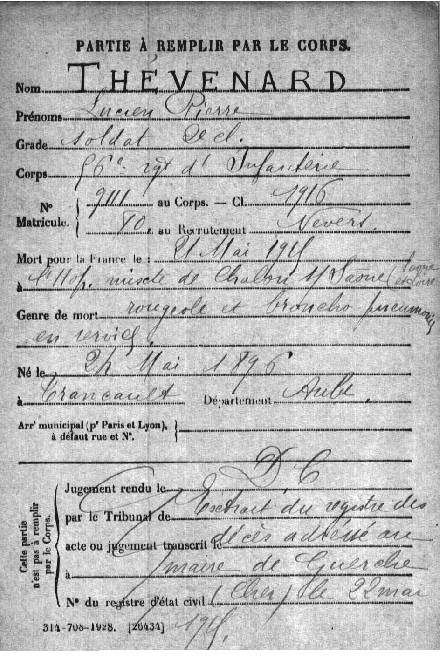 PARTIE À REMPLIR PAR LE CORPS.
Nom THÉVENARD
Prénoms Lucien Pierre
Grade soldat 2e cl.
Corps 56e rgt d'Infanterie
No Matricule. 9111 au Corps. — Cl. 1916
80. au Recrutement Nevers.
Mort pour la France le : 21 Mai 1915
à l'Hop. mixte de Chalon s/Saone (Saone et Loire)
Genre de mort rougeole et broncho pneumonie
en service.
Né le 24 Mai 1896
à Trancault Département Aube.
Arrt municipal (pr Paris et Lyon), à défaut rue et No.
D C
Cette partie n'est pas à remplir par le Corps.
Jugement rendu le Extrait du registre des
par le Tribunal de
acte ou jugement transcrit le décès adressé au
à maire de Guerche
No du registre d'état civil (Cher) le 22 mai
1915.
314-708-1928. [26434]